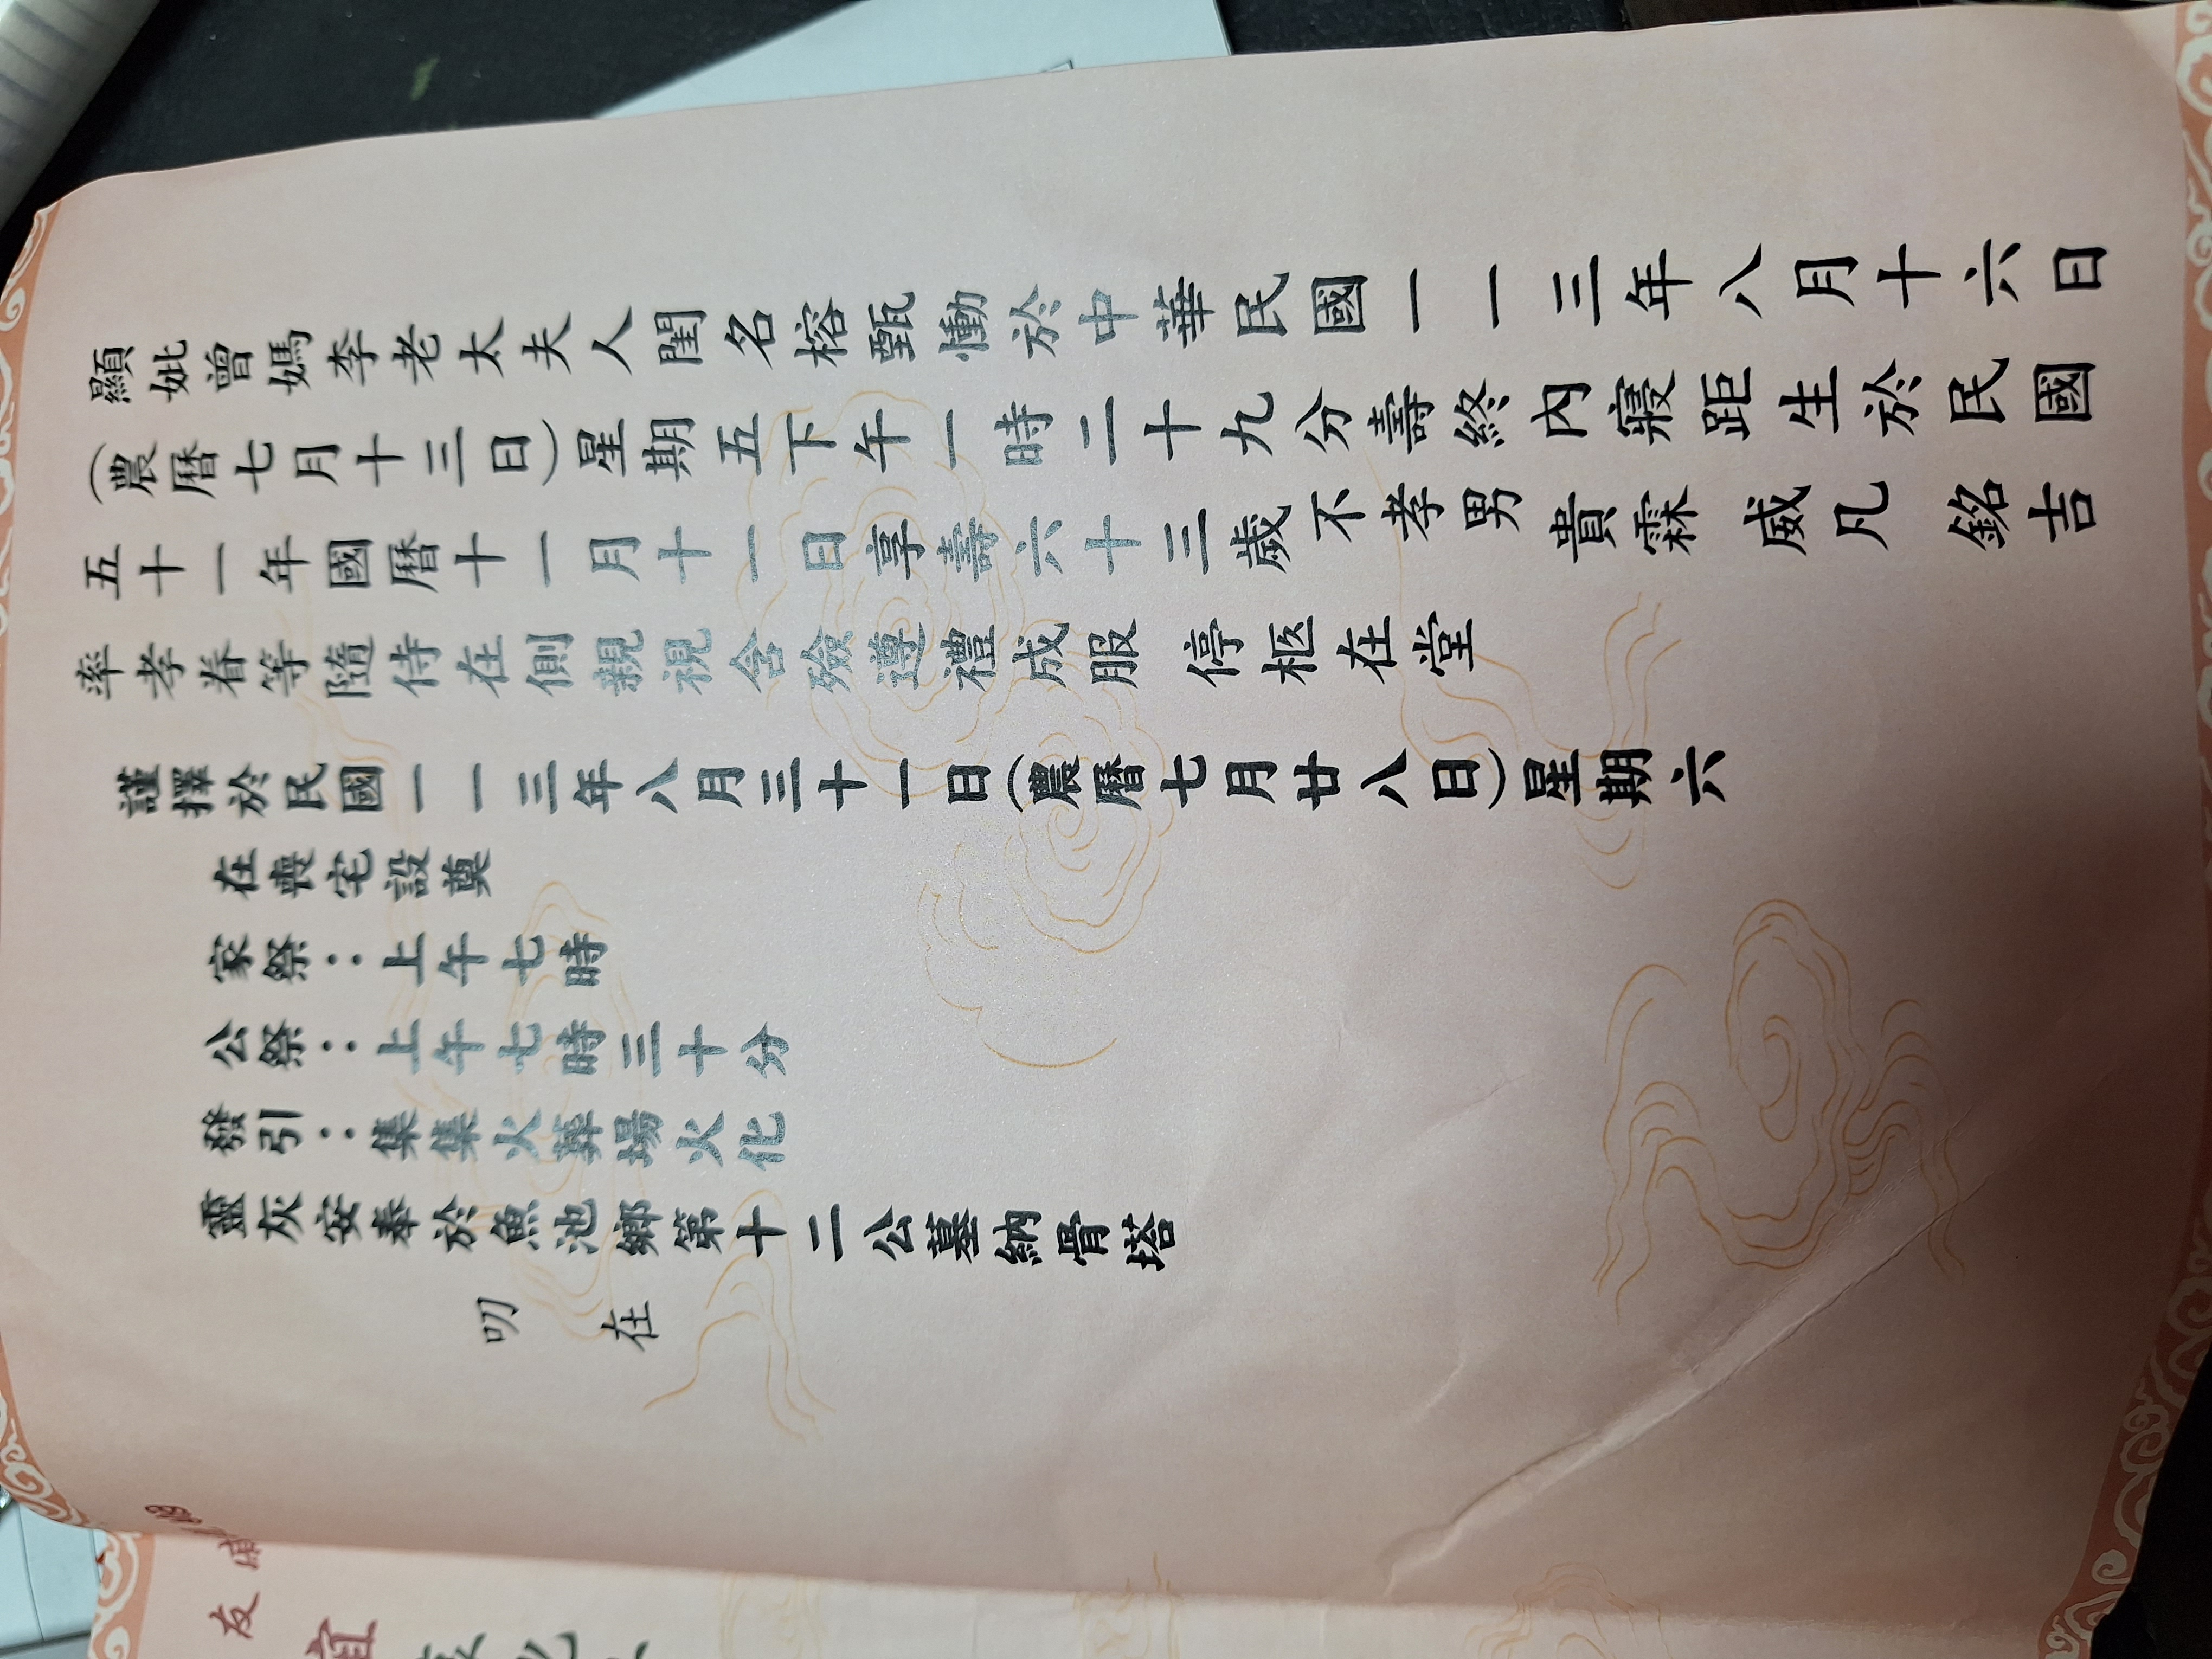 顯妣曾媽李老太夫人閨名榕甄慟於中華民國一一三年八月十六日
(農曆七月十三日)星期五下午一時二十九分壽終內寢距生於民國
五十一年國曆十一月十一日享壽六十三歲不孝男貴霖 威凡 銘吉
率孝眷等隨侍在側親視含殮遵禮成服 停柩在堂
謹擇於民國一一三年八月三十一日(農曆七月廿八日)星期六
在喪宅設奠
家祭:上午七時
公祭:上午七時三十分
發引:集集火葬場火化
靈灰安奉於魚池鄉第十二公墓納骨塔
叨 在
友
誼